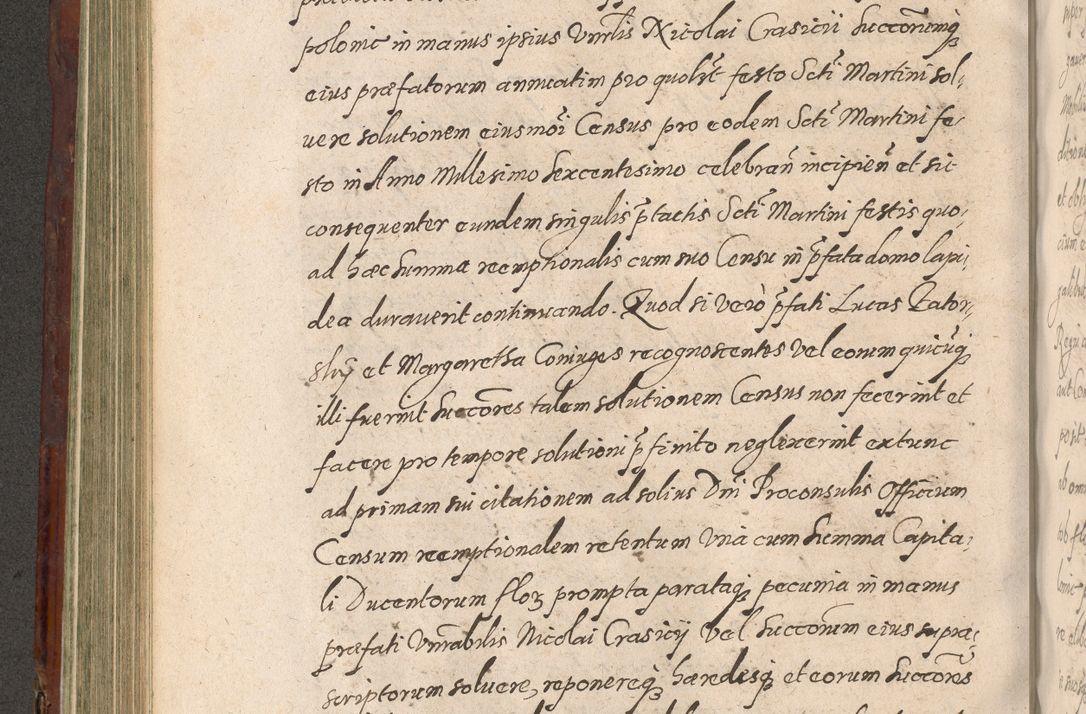 polonic in manus ipsius Vnrlis Nicolai Crasicii Succorumq;
eius præfatorum annuatim pro quolibt festo Scti Martini sol,
uere solutionem eiusmoi Census pro eodem Scti Martini fe,
sto in Anno Millesimo Sexcentesimo celebran incipien et sic
consequenter eundem singulis ptactis Scti Martini festis quo,
ad hæc summa reemptionalis cum suo Censu in pfata domo lapi,
dea durauerit continuando. Quod si vero pfati Lucas
et Margaretha Coniuges recognoscentes vel eorum quicuq;
illi fuerint Succores talem solutionem Census non fecerint et
facere pro tempore solutioni pfinito neglexerint extunc
ad primam sui citationem ad solius Dni Proconsulis Officium
Censum reemptionalem retentum vna cum Summa Capita,
li Ducentorum flor prompta parataq; pecunia in manus
præfati Vnrabilis Nicolai Crasicij vel Succorum eius supra,
scriptorum soluere, reponereq; hæredesq; et eorum Succores